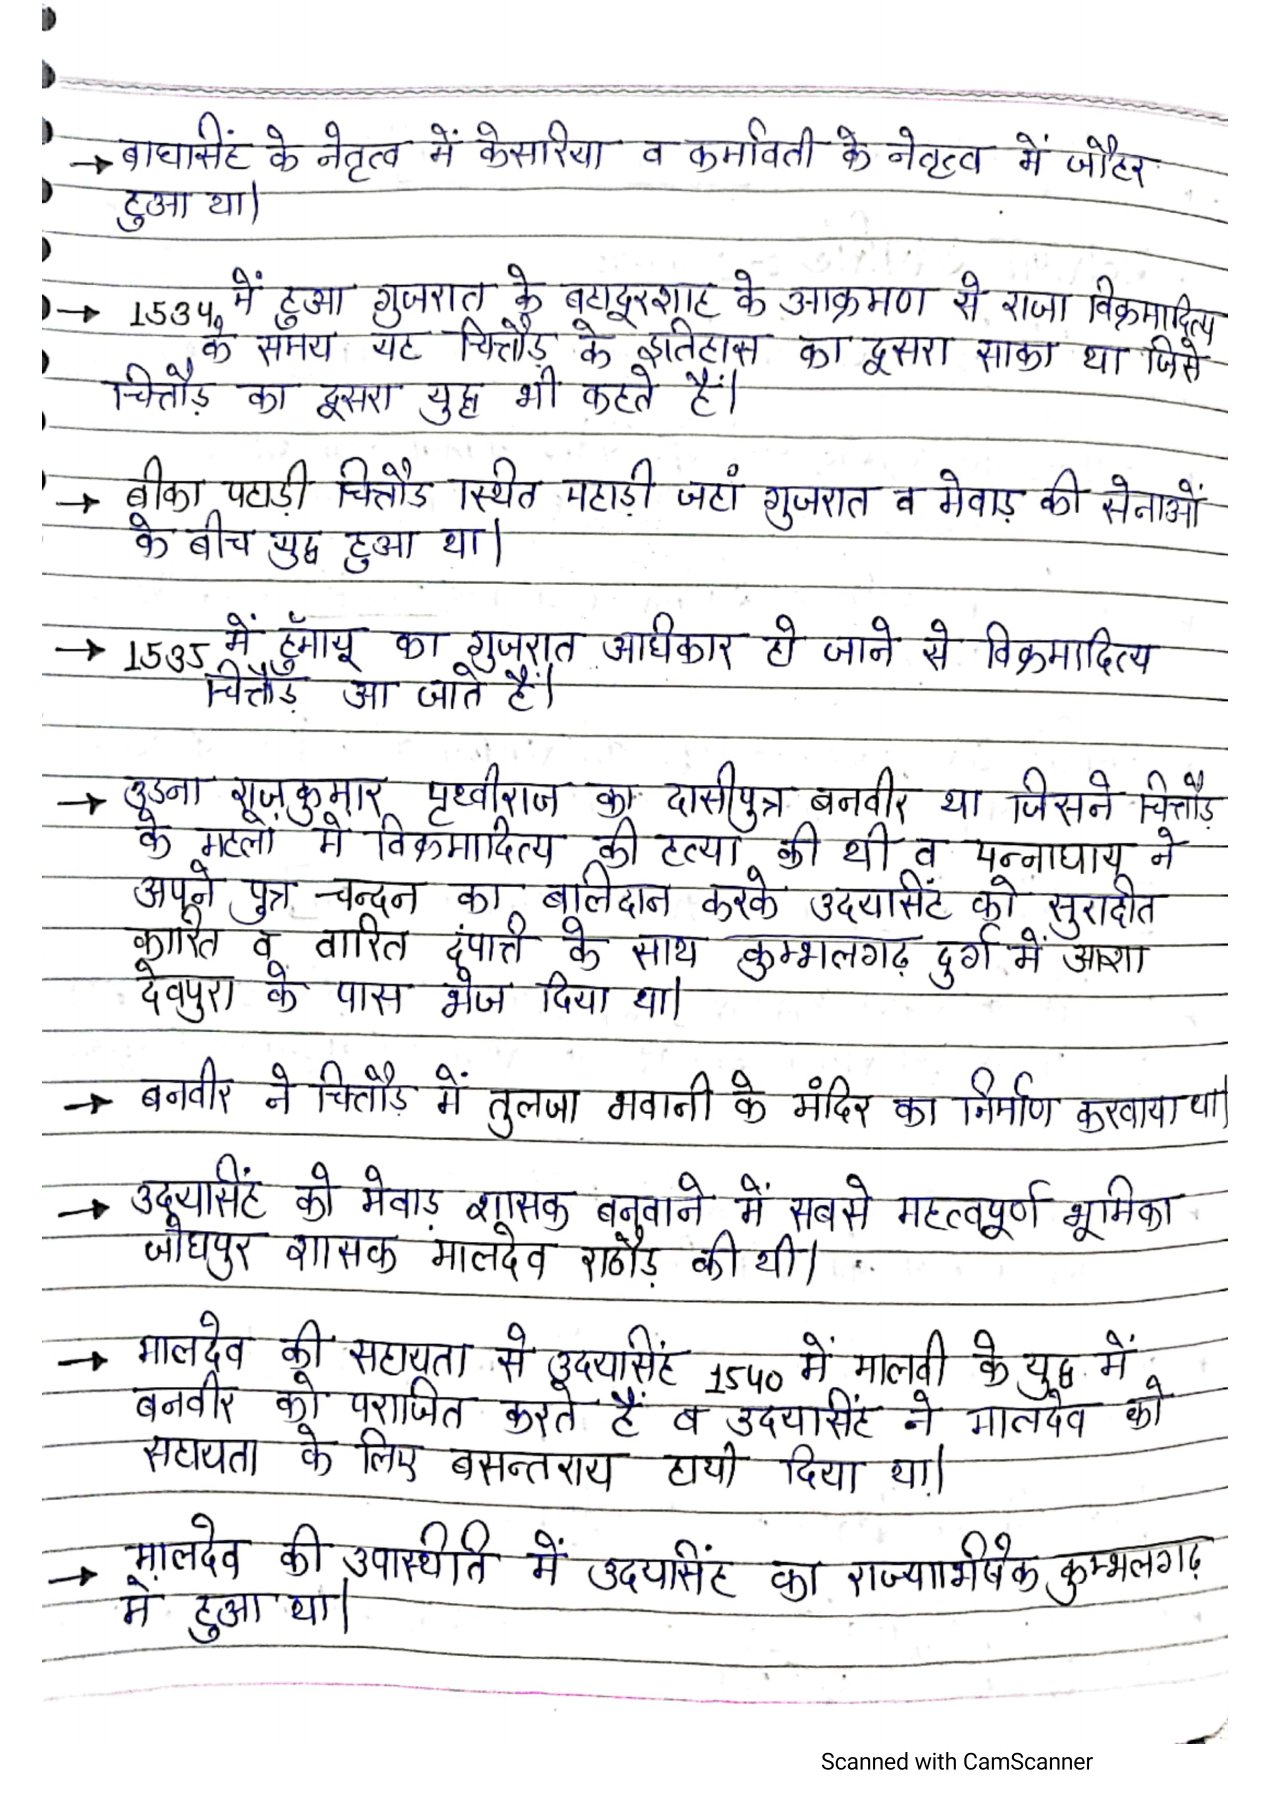 → बाघसिंह के नेतृत्व में केसरिया व कर्मावती के नेतृत्व में जौहर
हुआ था।
→ 1534 में हुआ गुजरात के बहादूरशाह के आक्रमण से राजा विक्रमादित्य
के समय यह चित्तौड़ के इतिहास का दूसरा साका था जिसे
चित्तौड़ का दूसरा युद्ध भी कहते हैं।
→ बीका पहाड़ी चित्तौड़ स्थित पहाड़ी जहां गुजरात व मेवाड़ की सेनाओं
के बीच युद्ध हुआ था।
→ 1535 में हुँमायू का गुजरात अधिकार हो जाने से विक्रमादित्य
चित्तौड़ आ जाते हैं।
→ उडना राजकुमार पृथ्वीराज का दासीपुत्र बनवीर था जिसने चित्तौड़
के महलों में विक्रमादित्य की हत्या की थी व पन्नाधाय ने
अपने पुत्र चन्दन का बलिदान करके उदयसिंह को सुरक्षीत
कीरत व वारित दंपत्ति के साथ कुम्भलगढ़ दुर्ग में आशा
देवपुरा के पास भेज दिया था।
→ बनवीर ने चित्तौड़ में तुलजा भवानी के मंदिर का निर्माण करवाया था।
→ उदयसिंह को मेवाड़ शासक बनवाने में सबसे महत्वपूर्ण भूमिका
जोधपुर शासक मालदेव राठौड़ की थी।
→ मालदेव की सहायता से उदयसिंह 1540 में मालवी के युद्ध में
बनवीर को पराजित करते हैं व उदयसिंह ने मालदेव को
सहायता के लिए बसन्तराय हाथी दिया था।
→ मालदेव की उपस्थीति में उदयसिंह का राज्याभिषेक कुम्भलगढ़
में हुआ था।
Scanned with CamScanner